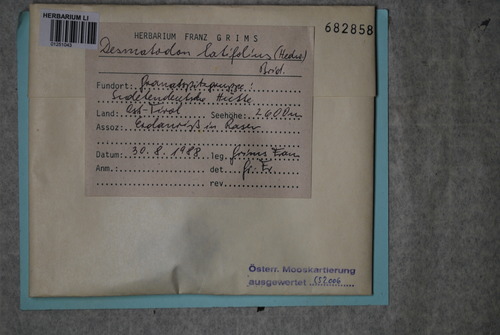 HERBARIUM LI
01231043
682858
HERBARIUM FRANZ GRIMS
Dermatodon latifolius (Hedw)
Brid.
Fundort: Granatspitzgruppe:
Sudetendeutsche Hütte
Land: Ost-Tirol Seehöhe: 2600m
Assoz: Erdanriß in Rasen
Datum: 30.8.1988 leg. Grims Franz
Anm.: det. Gr. Fr.
rev.
Österr. Mooskartierung
ausgewertet